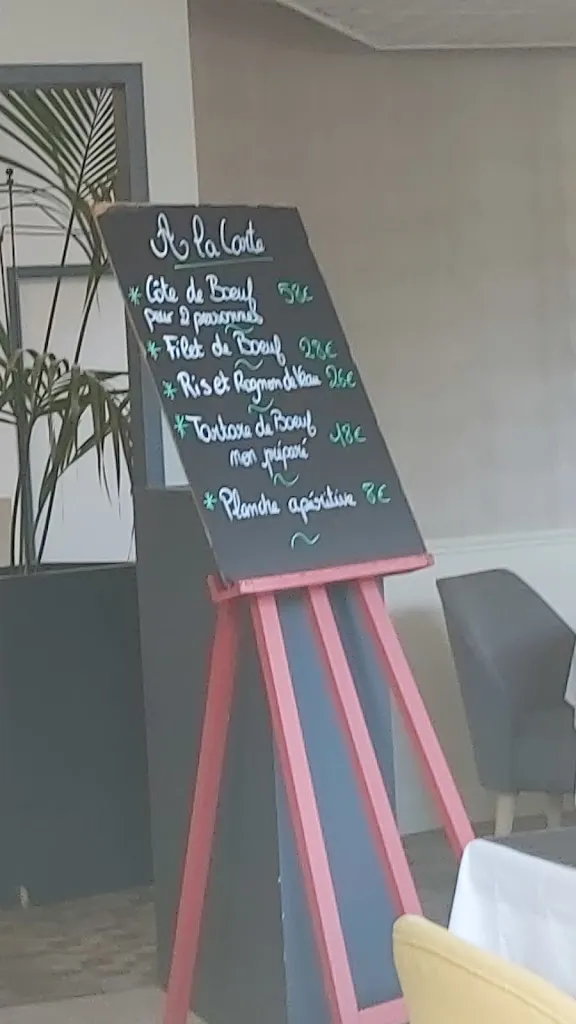 A la Carte
* Côte de Boeuf 58€
pour 2 personnes
* Filet de Boeuf 28€
* Ris et Rognon de Veau 26€
* Tartare de Boeuf 18€
non préparé
* Planche apéritive 8€